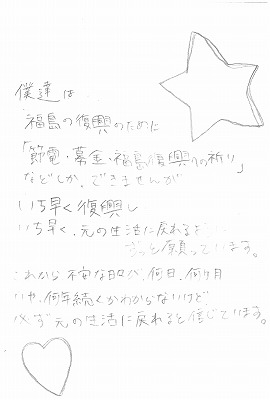 僕達は
福島の復興のために
「節電・募金・福島復興への祈り」
などしか、できませんが
いち早く復興し
いち早く、元の生活に戻れると
ずっと願っています。
これから不安な日々が、何日、何ヶ月
いや、何年続くかわからないけど
必ず元の生活に戻れると信じています。